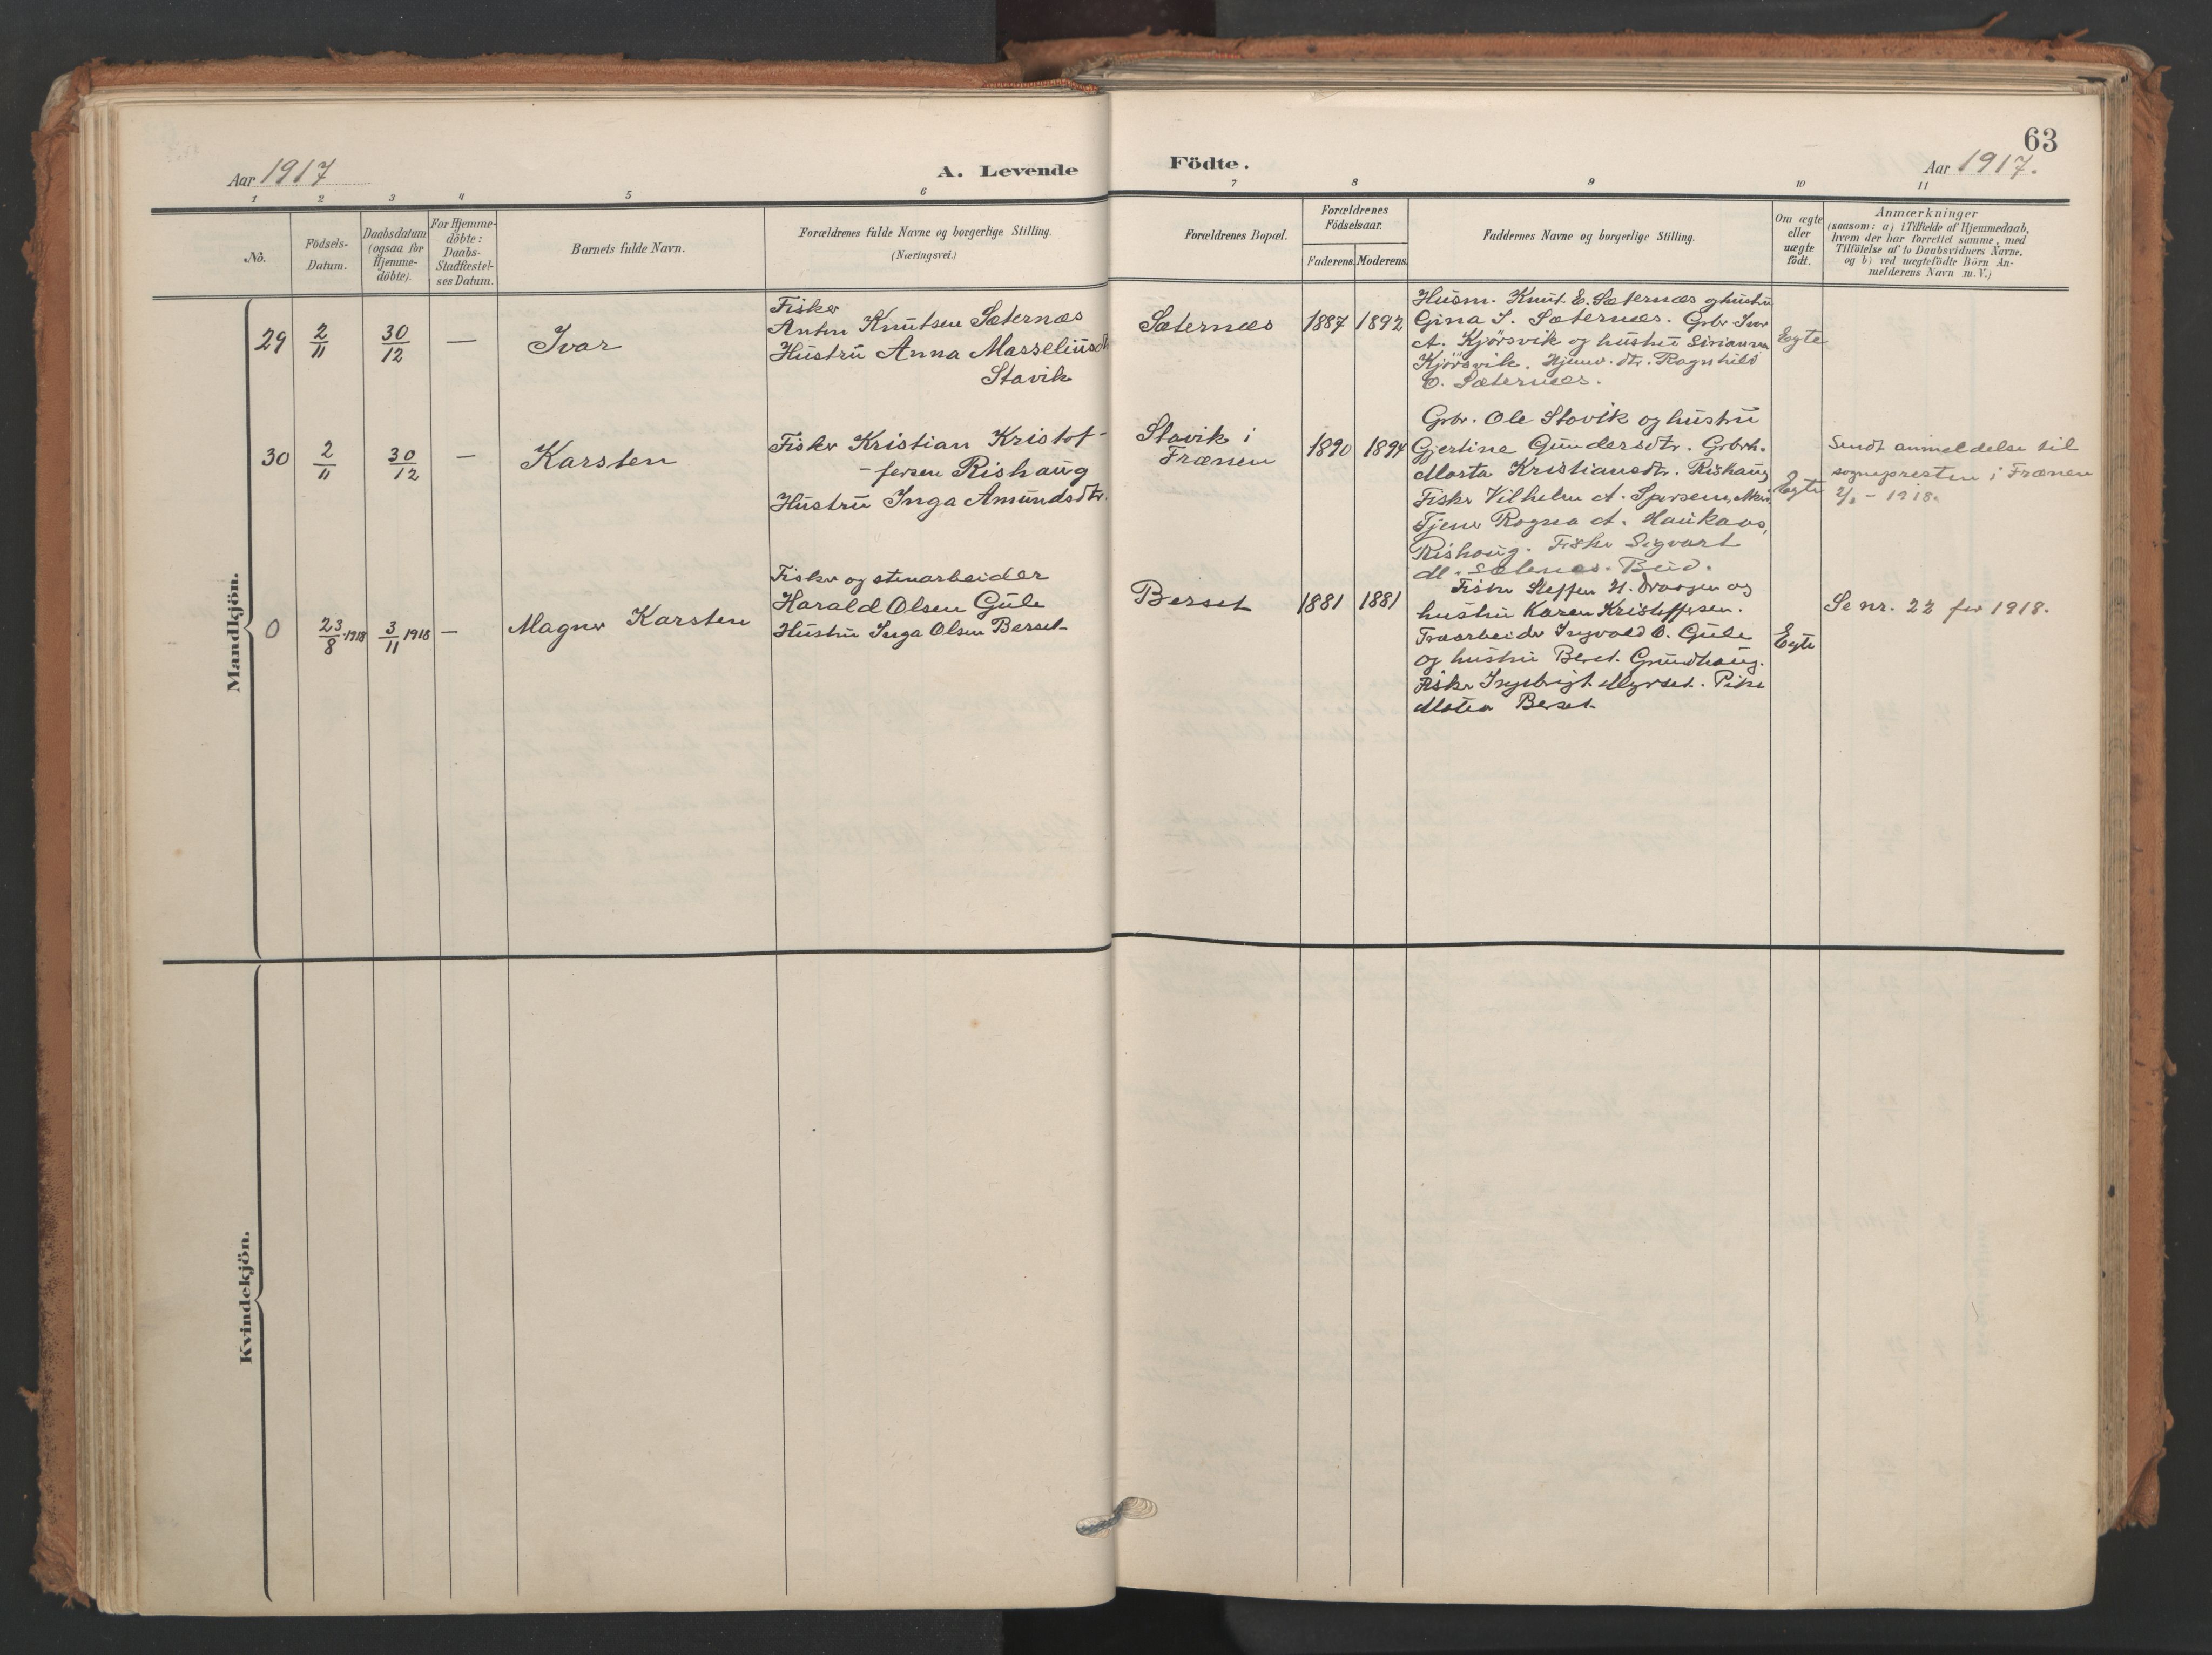 63
Aar 1917
A. Levende
Födte.
Aar 1917.
1 2 3 4 5 6 7 8 9 10 11
No.
Födsels-
Datum.
Daabsdatum
(ogsaa for
Hjemme-
döbte).
For Hjemme-
döbte:
Daabs-
Stadfæstel-
ses Datum.
Barnets fulde Navn.
Forældrenes fulde Navne og borgerlige Stilling.
(Næringsvei.)
Forældrenes Bopæl.
Forældrenes
Födselsaar.
Faderens. Moderens.
Faddernes Navne og borgerlige Stilling.
Om ægte
eller
uægte
födt.
Anmærkninger
(saasom: a) i Tilfælde af Hjemmedaab,
hvem der har forrettet samme, med
Tilföielse af to Daabsvidners Navne,
og b) ved uægtefödte Börn An-
melderens Navn m. V.)
Mandkjön.
29
2/11
30/12
—
Ivar
Fisker
Anton Knutsen Sæternæs
Hustru Anna Masseliusdtr
Stavik
Sæternæs
1887 1892
Husm. Knut E. Sæternæs og hustru
Gina I. Sæternæs. Grbr Ivar
A. Kjörsvik og hustru Sirianna
Kjörsvik. Hjemv. dtr. Ragnhild
O. Sæternæs.
Egte
30
2/11
30/12
—
Karsten
Fisker Kristian Kristof-
-fersen Rishaug
Hustru Inga Amundsdtr.
Stavik i
Frænen
1890 1894
Grbr. Ole Stavik og hustru
Gjertine Gundersdtr. Grbrk.
Marta Kristiansdtr. Rishaug
Fisker Vilhelm A.
Tjener Ragna A. Haukaas,
Rishaug. Fisker Sigvart
M. Sæternes. Bud.
Egte
Sendt anmeldelse til
sognepresten i Frænen
2/1 - 1918.
0
23/8 1918
3/11 1918
—
Magner Karsten
Fisker og stenarbeider
Harald Olsen Gule
Hustru Inga Olsen Berset
Berset
1881 1881
Fisker Steffen H. Dragen og
hustru Karen Kristoffersen.
Træarbeider Ingvald O. Gule
og hustru Beret Grundhaug.
Fisker Ingebrigt Myrset. Pike
Matea Berset
Egte
Se nr. 22 for 1918.
Kvindekjön.